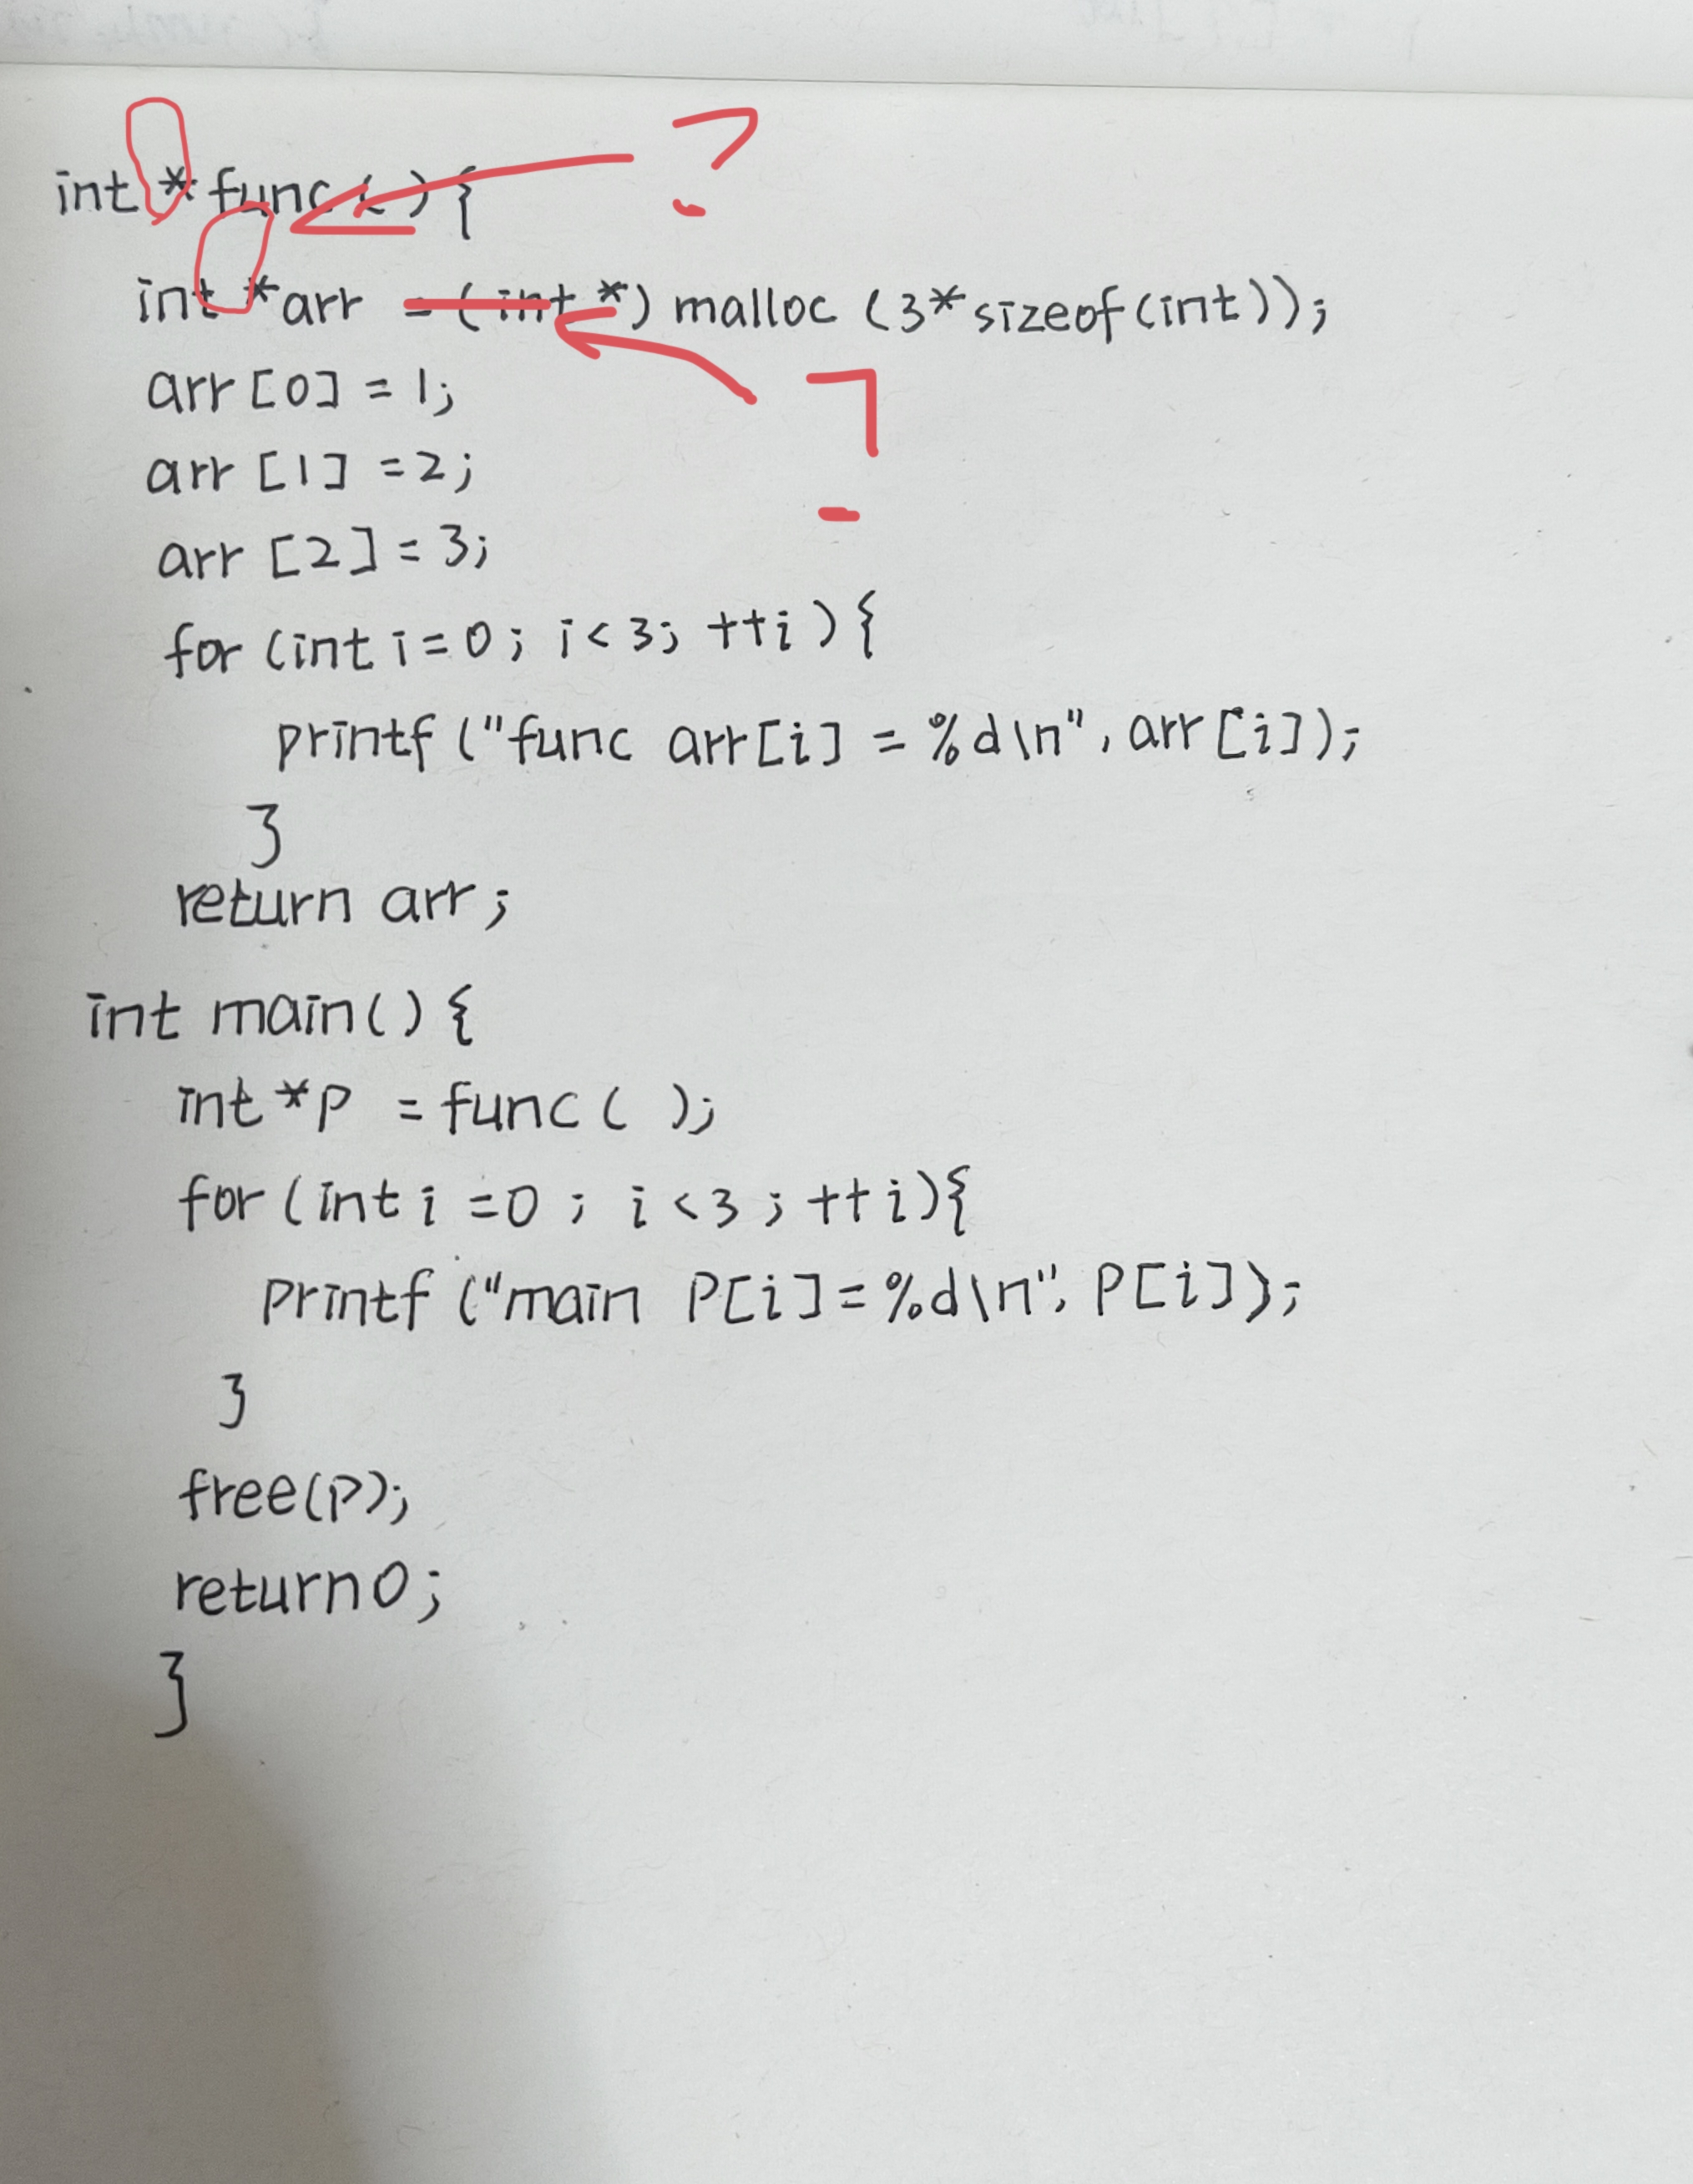 ?
int *func( ){
int *arr = (int *) malloc (3*sizeof(int));
arr[0] = 1;
?
arr [1] =2;
arr [2] = 3;
for (int i=0; i<3; ++i ){
printf ("func arr[i] = %d\n", arr [i]);
}
return arr;
int main(){
int *p = func ( );
for (int i =0 ; i <3 ; ++i){
printf ("main P[i]=%d\n", P[i]);
}
free(p);
return0;
}